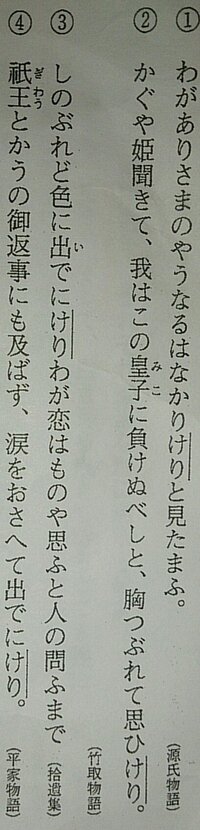 ① わがありさまのやうなるはなかりけりと見たまふ。 （源氏物語）
② かぐや姫聞きて、我はこの皇子に負けぬべしと、胸つぶれて思ひけり。 （竹取物語）
③ しのぶれど色に出でにけりわが恋はものや思ふと人の問ふまで （拾遺集）
④ 祇王とかうの御返事にも及ばず、涙をおさへて出でにけり。 （平家物語）
みこ
い
ぎわう